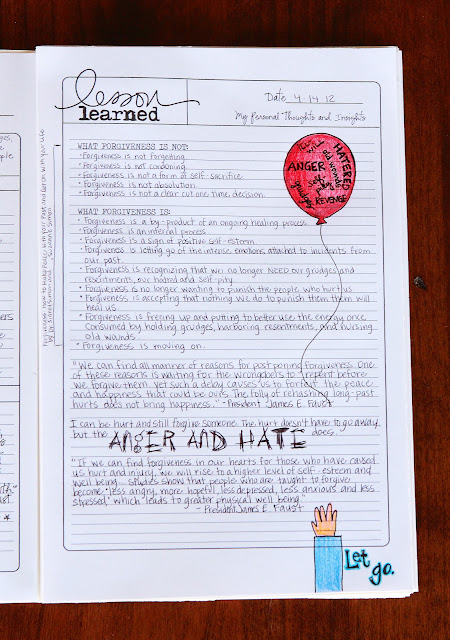 lesson
learned
Date 4.14.12
My Personal Thoughts and Insights
WHAT FORGIVENESS IS NOT:
• Forgiveness is not forgetting.
• Forgiveness is not condoning.
• Forgiveness is not a form of self-sacrifice
• Forgiveness is not absolution.
• Forgiveness is not a clear cut one time decision.
WHAT FORGIVENESS IS:
• Forgiveness is a by-product of an ongoing healing process.
• Forgiveness is an internal process
• Forgiveness is a sign of positive self-esteem
• Forgiveness is letting go of the intense emotions attached to incidents from
our past.
• Forgiveness is recognizing that we no longer NEED our grudges and
resentments, our hatred and self-pity.
• Forgiveness is no longer wanting to punish the people who hurt us
• Forgiveness is accepting that nothing we do to punish them will
heal us.
• Forgiveness is freeing up and putting to better use the energy once
consumed by holding grudges, harboring resentments, and nursing
old wounds.
• Forgiveness is moving on.
"We can find all manner of reasons for postponing forgiveness. One
of these reasons is waiting for the wrongdoers to repent before
we forgive them. Yet such a delay causes us to forfeit the peace
and happiness that could be ours. The folly of rehashing long-past
hurts does not bring happiness." -President James E. Faust
I can be hurt and still forgive someone. The hurt doesn't have to go away,
but the ANGER AND HATE does.
"If we can find forgiveness in our hearts for those who have caused
us hurt and injury, we will rise to a higher level of self-esteem and
well being. Studies show that people who are taught to forgive
become "less angry, more hopeful, less depressed, less anxious and less
stressed," which leads to greater physical well being."
- President James E. Faust
ILL WILL
HATRED
old wounds
ANGER
self pity
grudges
REVENGE
Let
go.
Forgiveness: How to Make Peace with your Past and Get on with Your Life